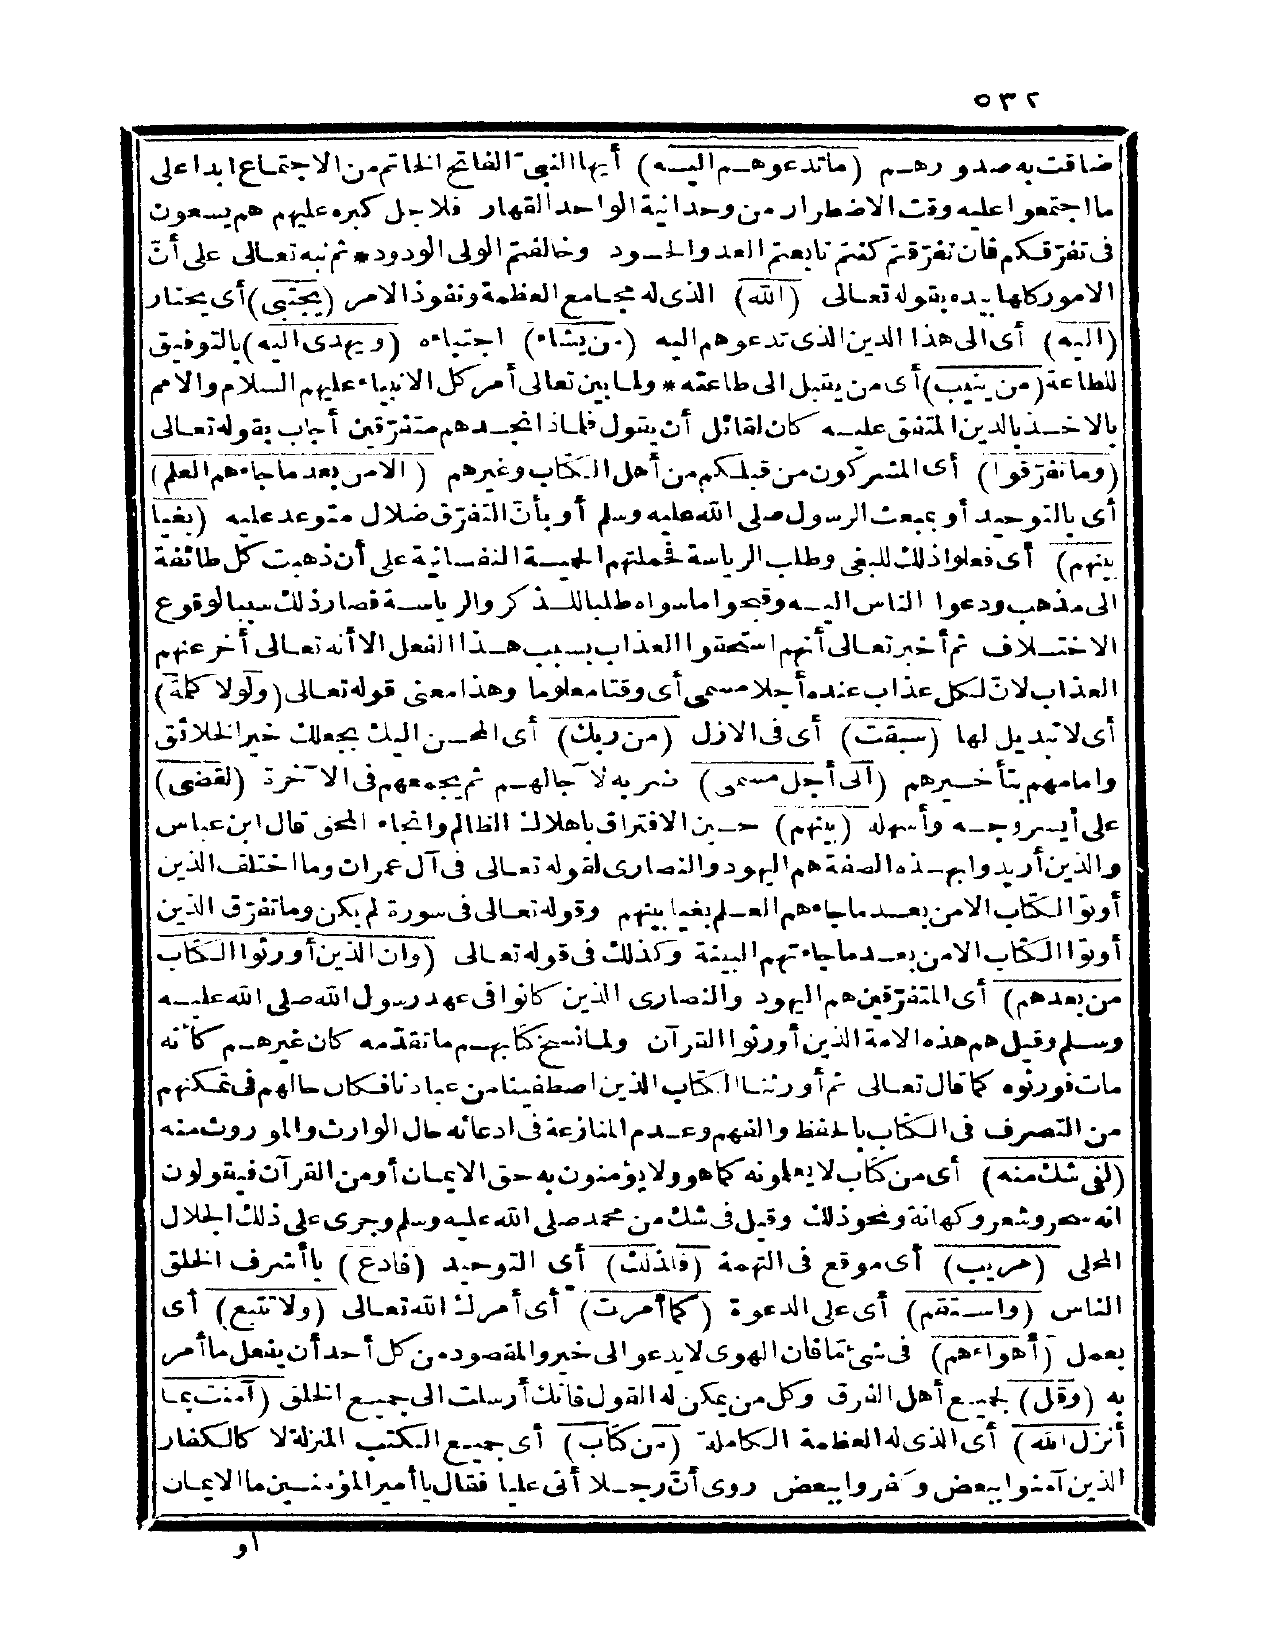 ٥٣٢
ضاقت به صدورهم (ما تدعوهم اليه) أيها النبي الفاتح الخاتم من الاجتماع ابدا على
ما اجتمعوا عليه وقت الاضطرار من وحدانية الواحد القهار فلاجل كبره عليهم هم يسعون
فى تفرقكم فان تفرقتم كنتم تابعتم العدو الحسود وخالفتم الولى الودود * ثم نبه تعالى على أنّ
الامور كلها بيده بقوله تعالى (الله) الذى له مجامع العظمة ونفوذ الامر (يجتبى) أى يختار
(اليه) أى الى هذا الدين الذى تدعوهم اليه (من يشاء) اجتباءه (ويهدى اليه) بالتوفيق
للطاعة (من ينيب) أى من يقبل الى طاعته * ولما بين تعالى أمر كل الانبياء عليهم السلام والامم
بالاخذ بالدين المتفق عليه كان لقائل أن يقول فلماذا نجدهم متفرقين أجاب بقوله تعالى
(وما تفرّقوا) أى المشركون من قبلكم من أهل الكتاب وغيرهم (الا من بعد ما جاءهم العلم)
أى بالتوحيد أو بمبعث الرسول صلى الله عليه وسلم أو بأنّ التفرّق ضلال متوعد عليه (بغيا
بينهم) أى فعلوا ذلك للبغى وطلب الرياسة فحملتهم الحمية النفسانية على أن ذهبت كل طائفة
الى مذهب ودعوا الناس اليه وقبحوا ما سواه طلبا للذكر والرياسة فصار ذلك سببا لوقوع
الاختلاف ثم أخبر تعالى أنهم استحقوا العذاب بسبب هذا الفعل الا أنه تعالى أخر عنهم
العذاب لانّ لكل عذاب عنده أجلا مسمى أى وقتا معلوما وهذا معنى قوله تعالى (ولولا كلمة)
أى لا تبديل لها (سبقت) أى فى الازل (من ربك) أى المحسن اليك بجعلك خير الخلائق
وامامهم بتأخيرهم (الى أجل مسمى) ضربه لآجالهم ثم يجمعهم فى الآخرة (لقضى)
على أيسر وجه وأسهله (بينهم) حين الافتراق باهلاك الظالم وانجاء المحق قال ابن عباس
والذين أريدوا بهذه الصفة هم اليهود والنصارى لقوله تعالى فى آل عمران وما اختلف الذين
أوتوا الكتاب الا من بعد ما جاءهم العلم بغيا بينهم وقوله تعالى فى سورة لم يكن وما تفرّق الذين
أوتوا الكتاب الا من بعد ما جاءتهم البينة وكذلك فى قوله تعالى (وان الذين أورثوا الكتاب
من بعدهم) أى المتفرّقين هم اليهود والنصارى الذين كانوا فى عهد رسول الله صلى الله عليه
وسلم وقيل هم هذه الامة الذين أورثوا القرآن ولما نسخ كتابهم ما تقدّمه كان غيرهم كأنه
مات فورثوه كما قال تعالى ثم أورثنا الكتاب الذين اصطفينا من عبادنا فكان حالهم فى تمكنهم
من التصرف فى الكتاب بالحفظ والفهم وعدم المنازعة فى ادعائه حال الوارث والموروث منه
(لفى شك منه) أى من كتاب لا يعلمونه كما هو ولا يؤمنون به حق الايمان أو من القرآن فيقولون
انه سحر وشعر وكهانة ونحو ذلك وقيل فى شك من محمد صلى الله عليه وسلم وجرى على ذلك الجلال
المحلى (مريب) أى موقع فى التهمة (فلذلك) أى التوحيد (فادع) يا أشرف الخلق
الناس (واستقم) أى على الدعوة (كما أمرت) أى أمرك الله تعالى (ولا تتبع) أى
بعمل (أهواءهم) فى شئ ما فان الهوى لا يدعو الى خير والمقصود من كل أحد أن يفعل ما أمر
به (وقل) لجميع أهل الفرق وكل من يمكن له القول فانك أرسلت الى جميع الخلق (آمنت بما
أنزل الله) أى الذى له العظمة الكاملة (من كتاب) أى جميع الكتب المنزلة لا كالكفار
الذين آمنوا ببعض وكفروا ببعض روى أنّ رجلا أتى عليا فقال يا أمير المؤمنين ما الايمان
او